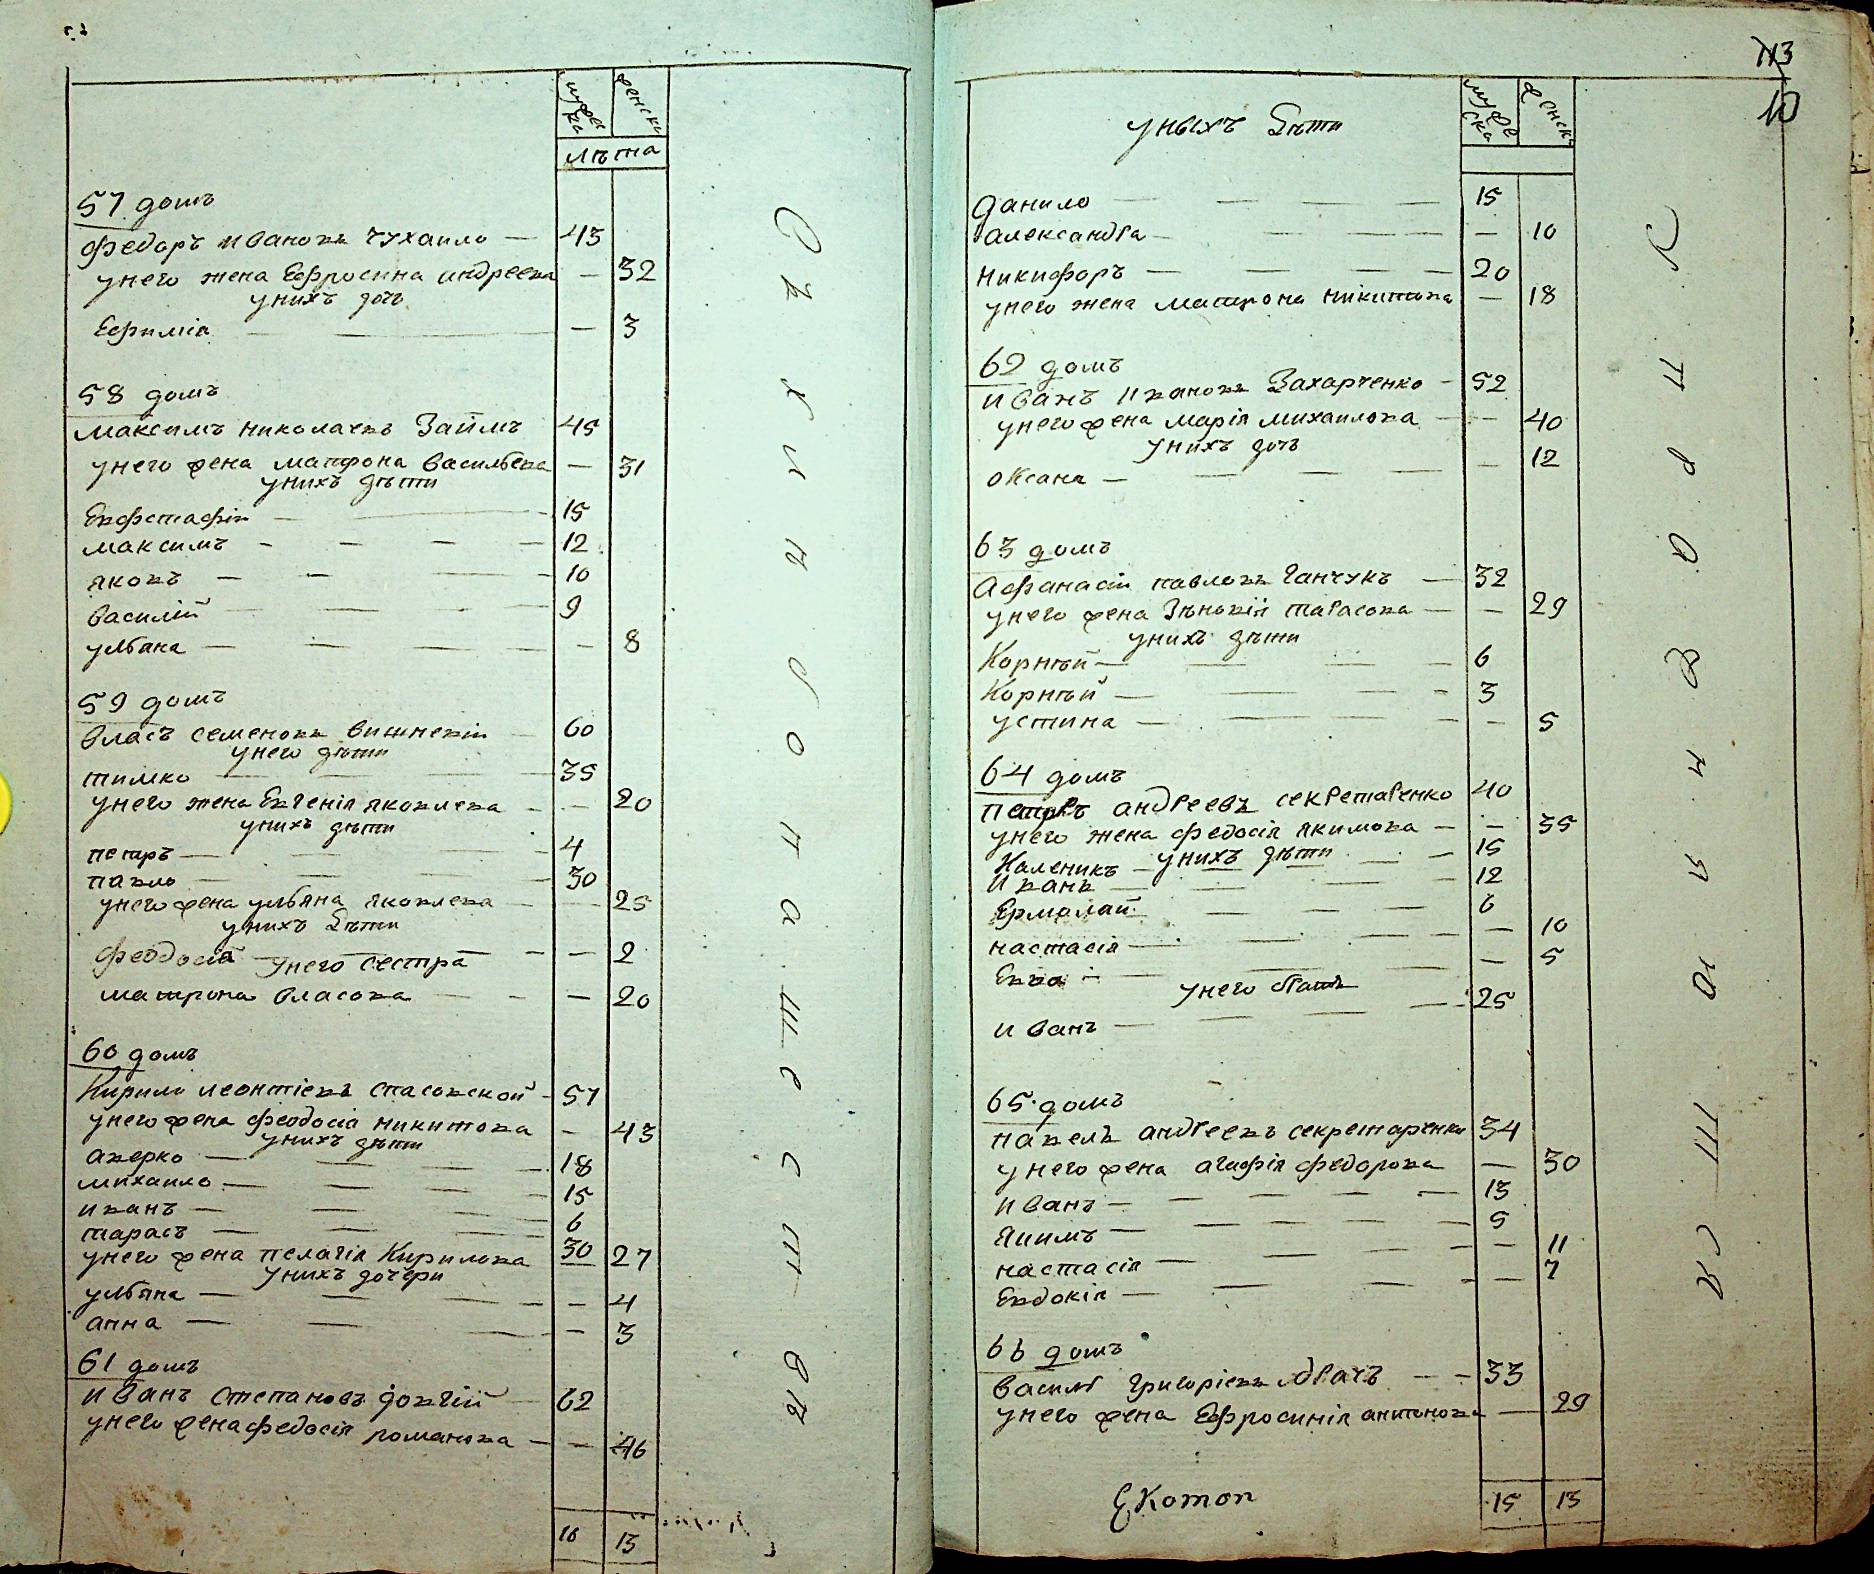 мужеска женски
лѣта
57 домъ
Федоръ Ивановъ Чухаило — 43
унего жена Ефросина андреева — 32
унихъ дочь
Ефимiа — 3
58 домъ
максимъ николаевъ Займъ 45
унего жена матрона васильева — 31
унихъ дѣти
Евфстафiи — 15
максимъ — 12
яковъ — 10
василiй — 9
ульяна — 8
59 домъ
власъ семеновъ вишневiи 60
унего дѣти
тимко — 35
унего жена Евгенiя яковлева — 20
унихъ дѣти
петръ — 4
павло — 30
унего жена ульяна яковлева — 25
унихъ дѣти
Феодосiа — 2
унего сестра
матрона власова — 20
60 домъ
Кирило леонтiевъ спасовской — 57
унего жена феодосiа никитова — 43
унихъ дѣти
аверко — 18
михаило — 15
иванъ — 6
тарасъ — 30
унего жена пелагiя Кирилова 27
унихъ дочери
ульяна — 4
анна — 3
61 домъ
иванъ степановъ довгiй — 62
унего жена федосiя романова — 46
16 13
113
10
уныхъ дѣти
мужеска женск
Данило — 15
александра — 10
никифоръ — 20
унего жена матрона никитова — 18
62 домъ
иванъ ивановъ Захарченко — 52
унего жена марiя михаилова — 40
унихъ дочь
оксана — 12
63 домъ
Афанасiи павловъ Ганчукъ — 32
унего жена Зѣновiя тарасова — 29
унихъ дѣти
Корнѣй — 6
Корнѣй — 3
устина — 5
64 домъ
петръ андреевъ секретаренко 40
унего жена федосiя якимова — 35
унихъ дѣти
Каленикъ — 15
иванъ — 12
Ермолай — 6
настасiя — 10
Евва — 5
унего братъ
иванъ — 25
65 домъ
павелъ андреевъ секретаренко 34
унего жена агафiя федорова — 30
иванъ — 13
якимъ — 9
настасiя — 11
Евдокiя — 7
66 домъ
василь григорiевъ — 33
унего жена Ефросинiя антонова — 29
15 13